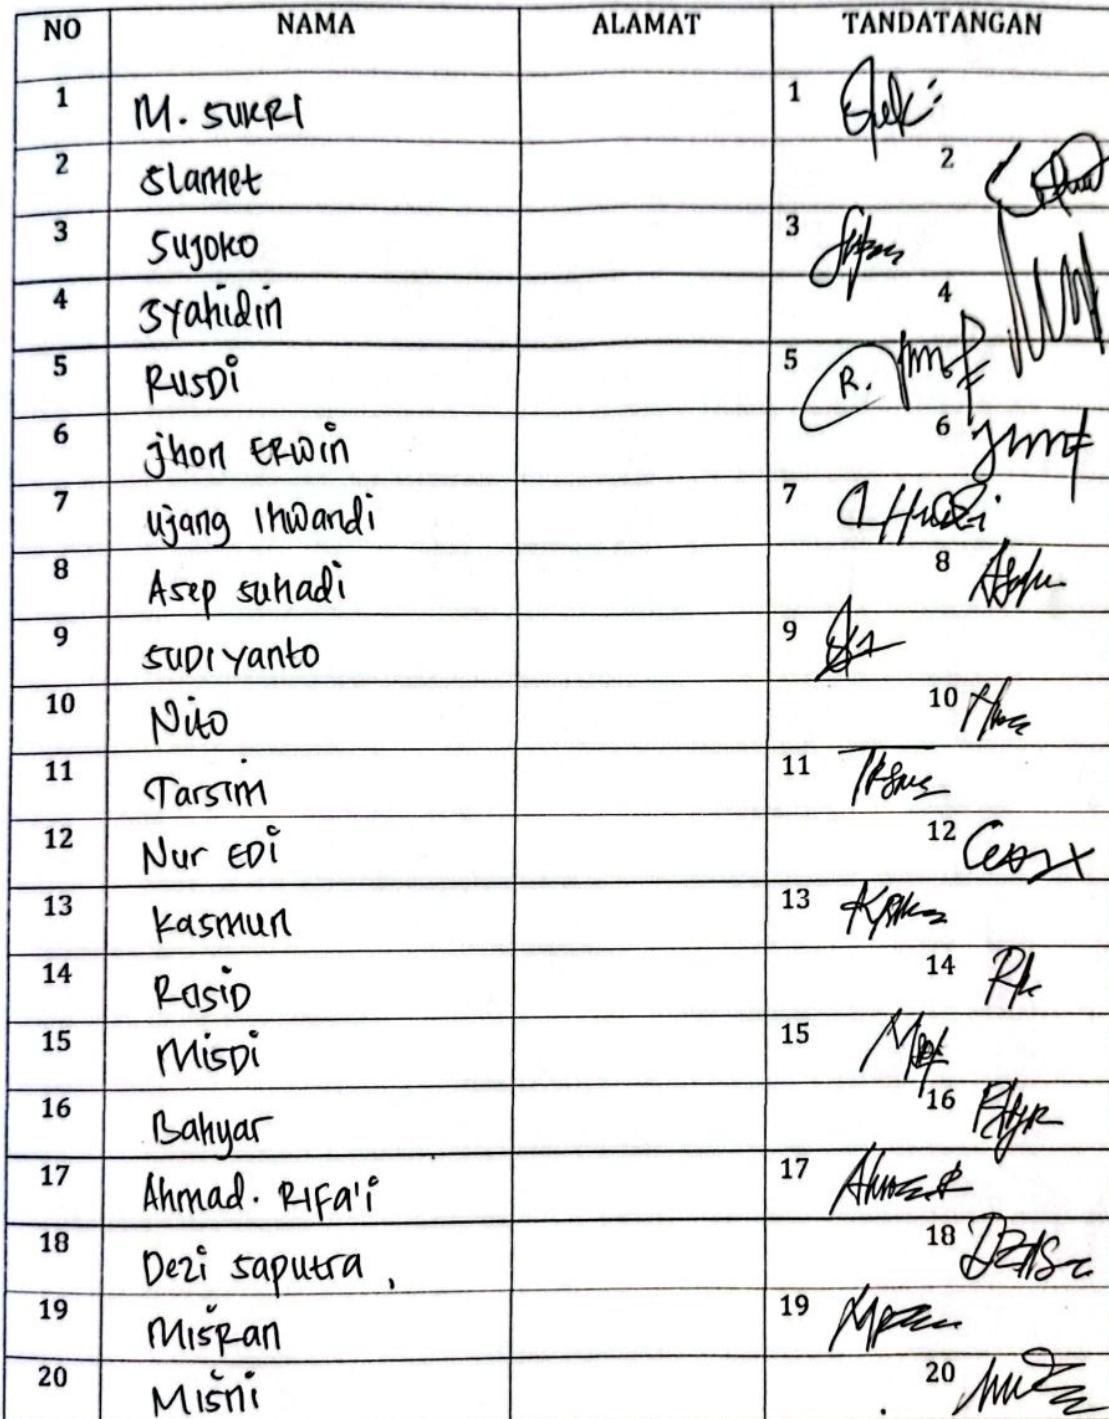 NO NAMA ALAMAT TANDATANGAN
1 M. SUKRI 1
2 Slamet 2
3 Sujoko 3
4 Syahidin 4
5 RUSDi 5 R.
6 jhon ERWin 6
7 ujang Ihwandi 7
8 Asep suhadi 8
9 SUDIyanto 9
10 Nito 10
11 Tarsim 11
12 Nur EDi 12
13 Kasmun 13
14 RasiD 14
15 MisDi 15
16 Bahyar 16
17 Ahmad. RIFa'i 17
18 Dezi saputra, 18
19 MisRan 19
20 Misni 20